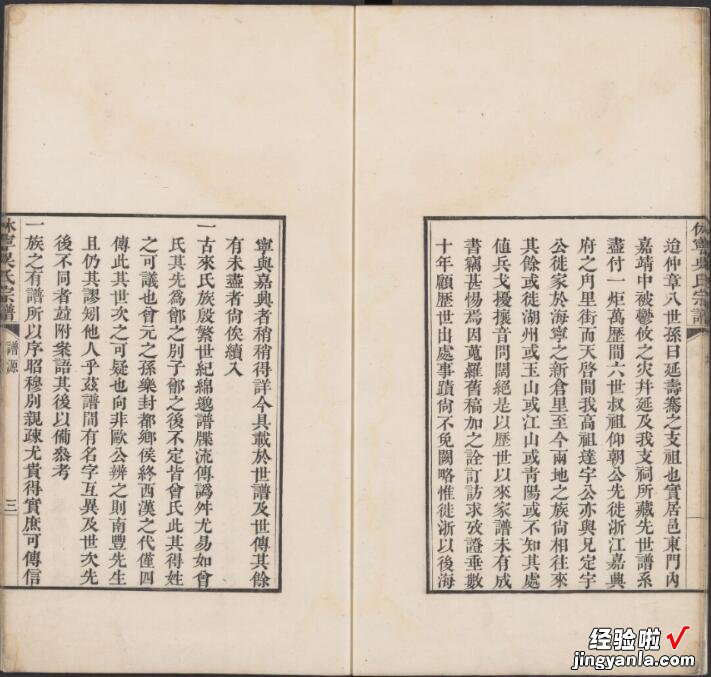 迨仲章八世孫曰延壽鶱之支祖也實居邑東門內
嘉靖中被鬱攸之灾幷延及我支祠所藏先世譜系
盡付一炬萬歷間六世叔祖仰朝公先徙浙江嘉興
府之角里街而天啓間我高祖達宇公亦與兄定宇
公徙家於海寧之新倉里至今兩地之族尙相往來
其餘或徙湖州或玉山或江山或靑陽或不知其處
値兵戈擾攘音問闊絕是以歷世以來家譜未有成
書竊甚惕焉因蒐羅舊稿加之詮訂訪求攷證垂數
十年顧歷世出處事蹟尙不免闕略惟徙浙以後海
休寧吳氏宗譜
寧與嘉興者稍稍得詳今具載於世譜及世傳其餘
有未盡者尙俟續入
一古來氏族殷繁世紀綿邈譜牒流傳譌舛尤易如曾
氏其先爲鄫之別子鄫之後不定皆曾氏此其得姓
之可議也曾元之孫樂封都鄕侯終西漢之代僅四
傳此其世次之可疑也向非歐公辨之則南豐先生
且仍其謬矧他人乎茲譜間有名字互異及世次先
後不同者竝附案語其後以備叅考
一族之有譜所以序昭穆別親疏尤貴得實庶可傳信
休寧吳氏宗譜
譜源
三
经验啦√
jingyanla.com